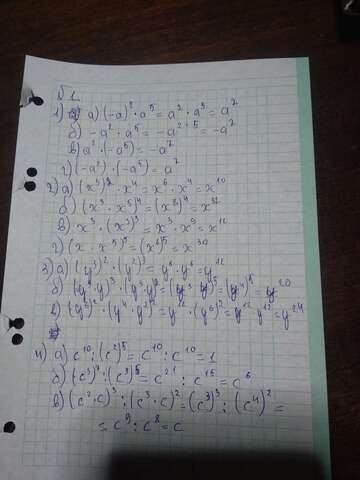 №1
1) а) (-a)² · a⁵ = a² · a⁵ = a⁷
б) -a² · a⁵ = -a²⁺⁵ = -a⁷
в) a² · (-a⁵) = -a⁷
г) (-a²) · (-a⁵) = a⁷
2) а) (x³)² · x⁴ = x⁶ · x⁴ = x¹⁰
б) (x³ · x⁵)⁴ = (x⁸)⁴ = x³²
в) x³ · (x³)³ = x³ · x⁹ = x¹²
г) (x · x⁵)⁵ = (x⁶)⁵ = x³⁰
3) а) (y³)² · (y²)³ = y⁶ · y⁶ = y¹²
= y²⁰
= y¹² · (y⁶)² = y¹² · y¹² = y²⁴
4) а) c¹⁰ : (c²)⁵ = c¹⁰ : c¹⁰ = 1
б) (c³)⁷ : (c³)⁵ = c²¹ : c¹⁵ = c⁶
в) (c² · c)³ : (c³ · c)² = (c³)³ : (c⁴)² =
= c⁹ : c⁸ = c